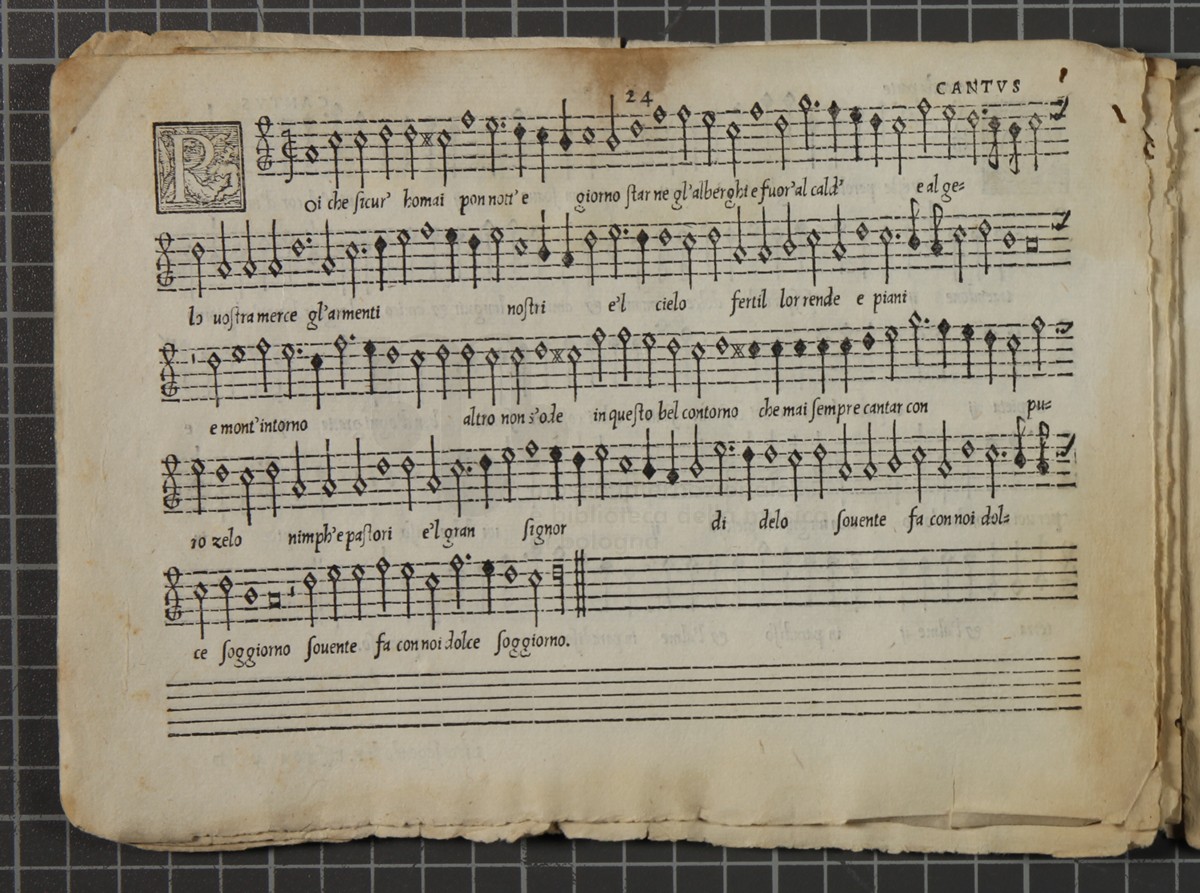 24
CANTVS
R
oi che ſicur' homai pon nott' e giorno ſtar ne gl'alberghi e fuor' al cald' e al ge=
lo uoſtra merce gl'armenti noſtri e'l cielo fertil lor rende e piani
e mont' intorno altro non s'ode in queſto bel contorno che mai ſempre cantar con pu=
ro zelo nimph' e paſtori e'l gran ſignor di delo ſouente fa con noi dol=
ce ſoggiorno ſouente fa con noi dolce ſoggiorno.